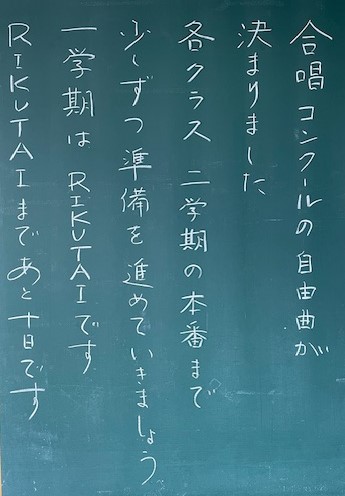 合唱コンクールの自由曲が
決まりました
各クラス 二学期の本番まで
少しずつ準備を進めていきましょう
一学期は RIKUTAIです
RIKUTAIまであと十日です